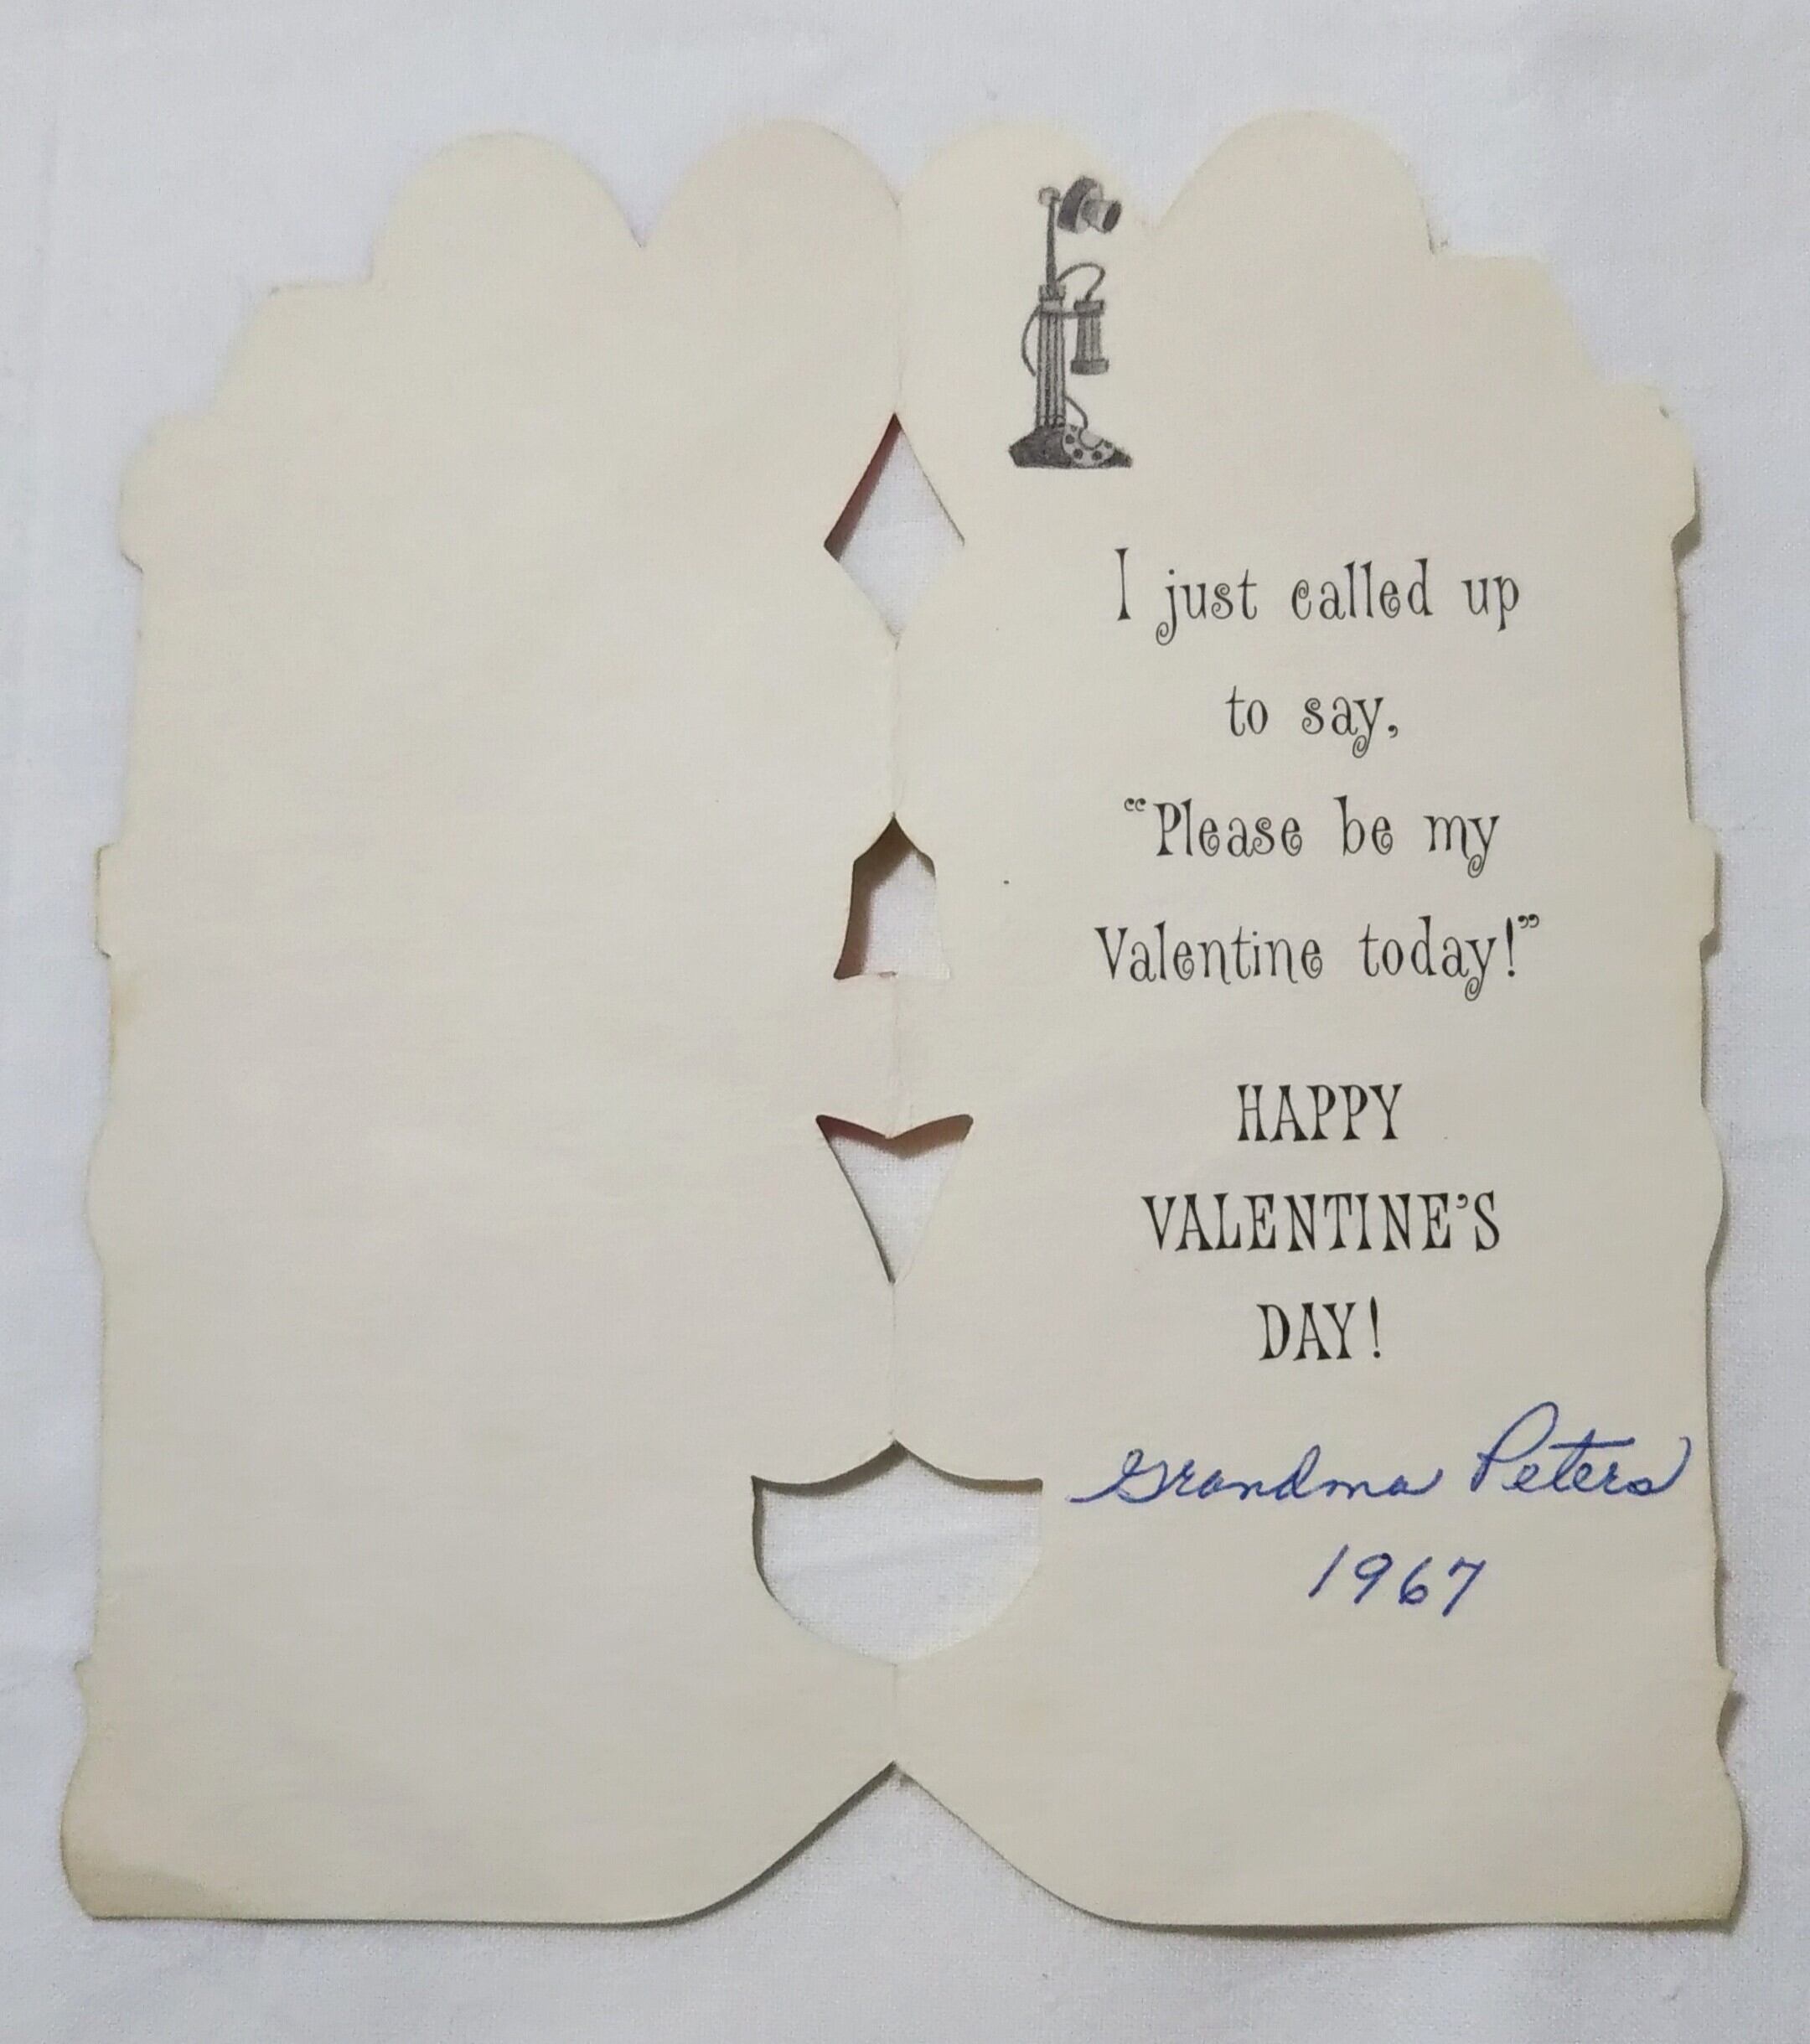 I just called up
to say,
“Please be my
Valentine today!”
HAPPY
VALENTINE’S
DAY!
Grandma Peters
1967